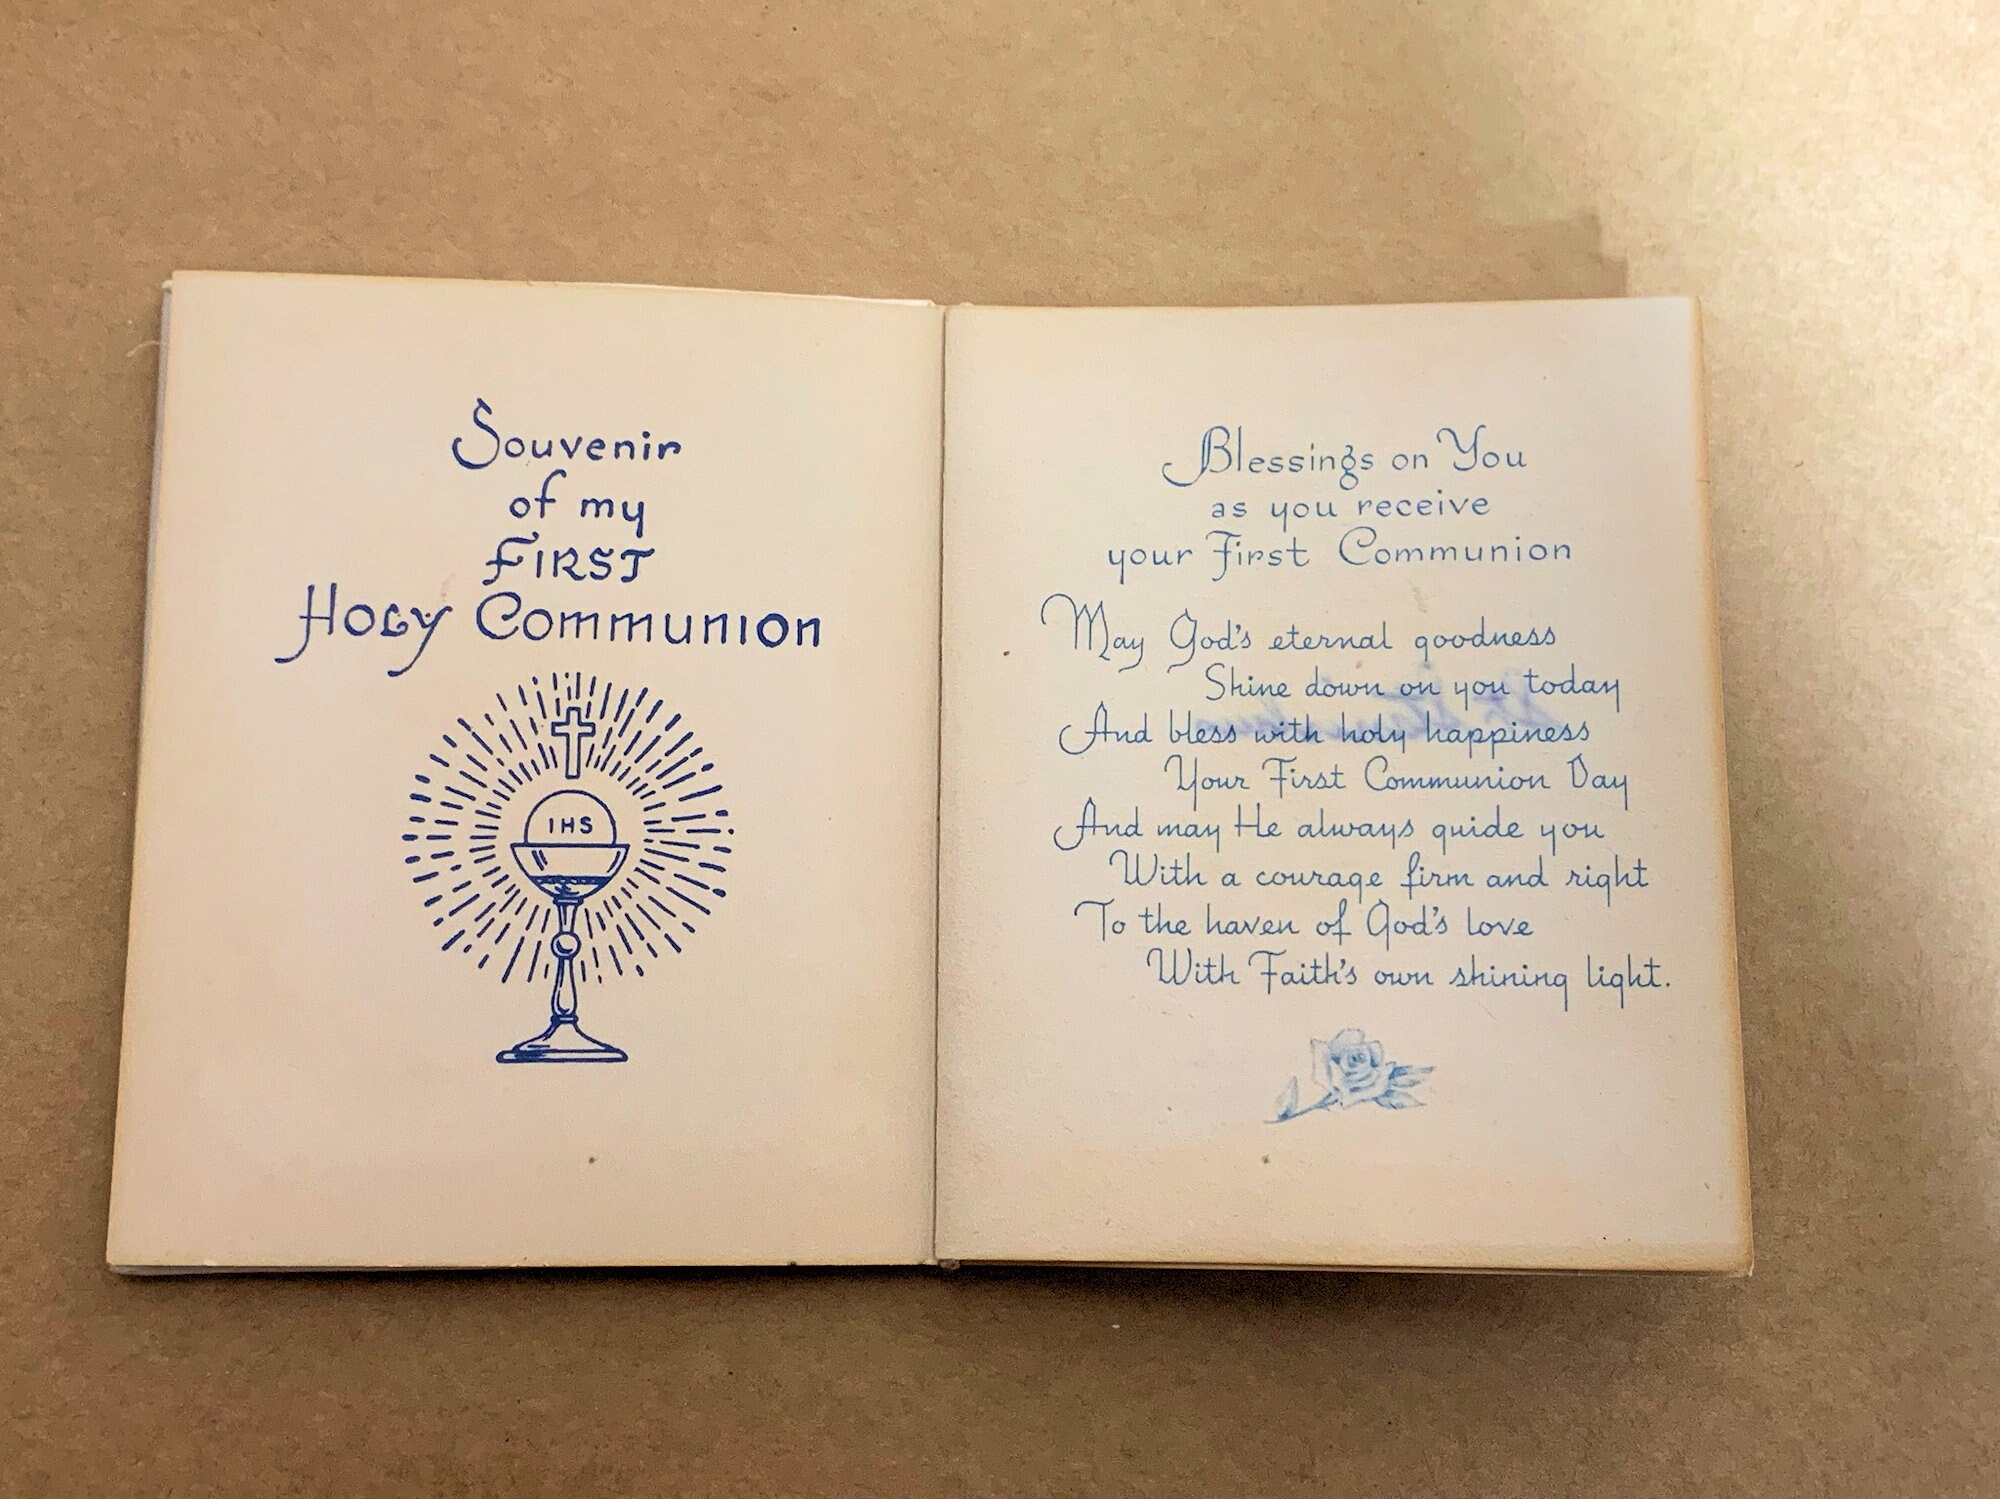 Souvenir
of my
FIRST
HOLY COMMUNION
IHS
Blessings on You
as you receive
your First Communion
May God's eternal goodness
Shine down on you today
And bless with holy happiness
Your First Communion Day
And may He always guide you
With a courage firm and right
To the haven of God's love
With Faith's own shining light.